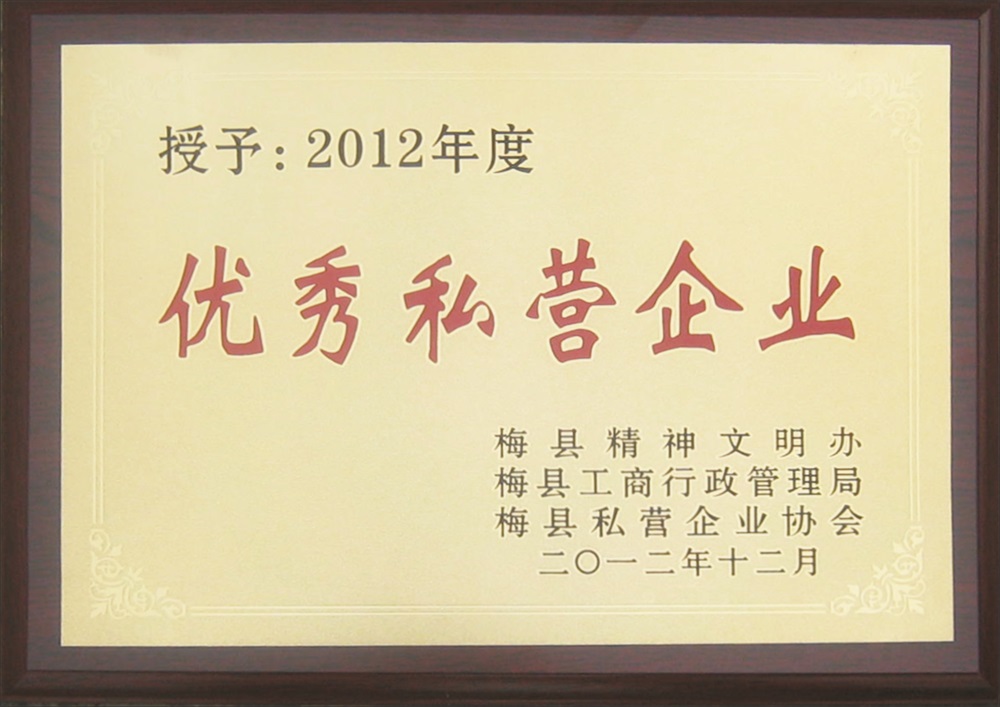 授予：2012年度
优秀私营企业
梅县精神文明办
梅县工商行政管理局
梅县私营企业协会
二〇一二年十二月